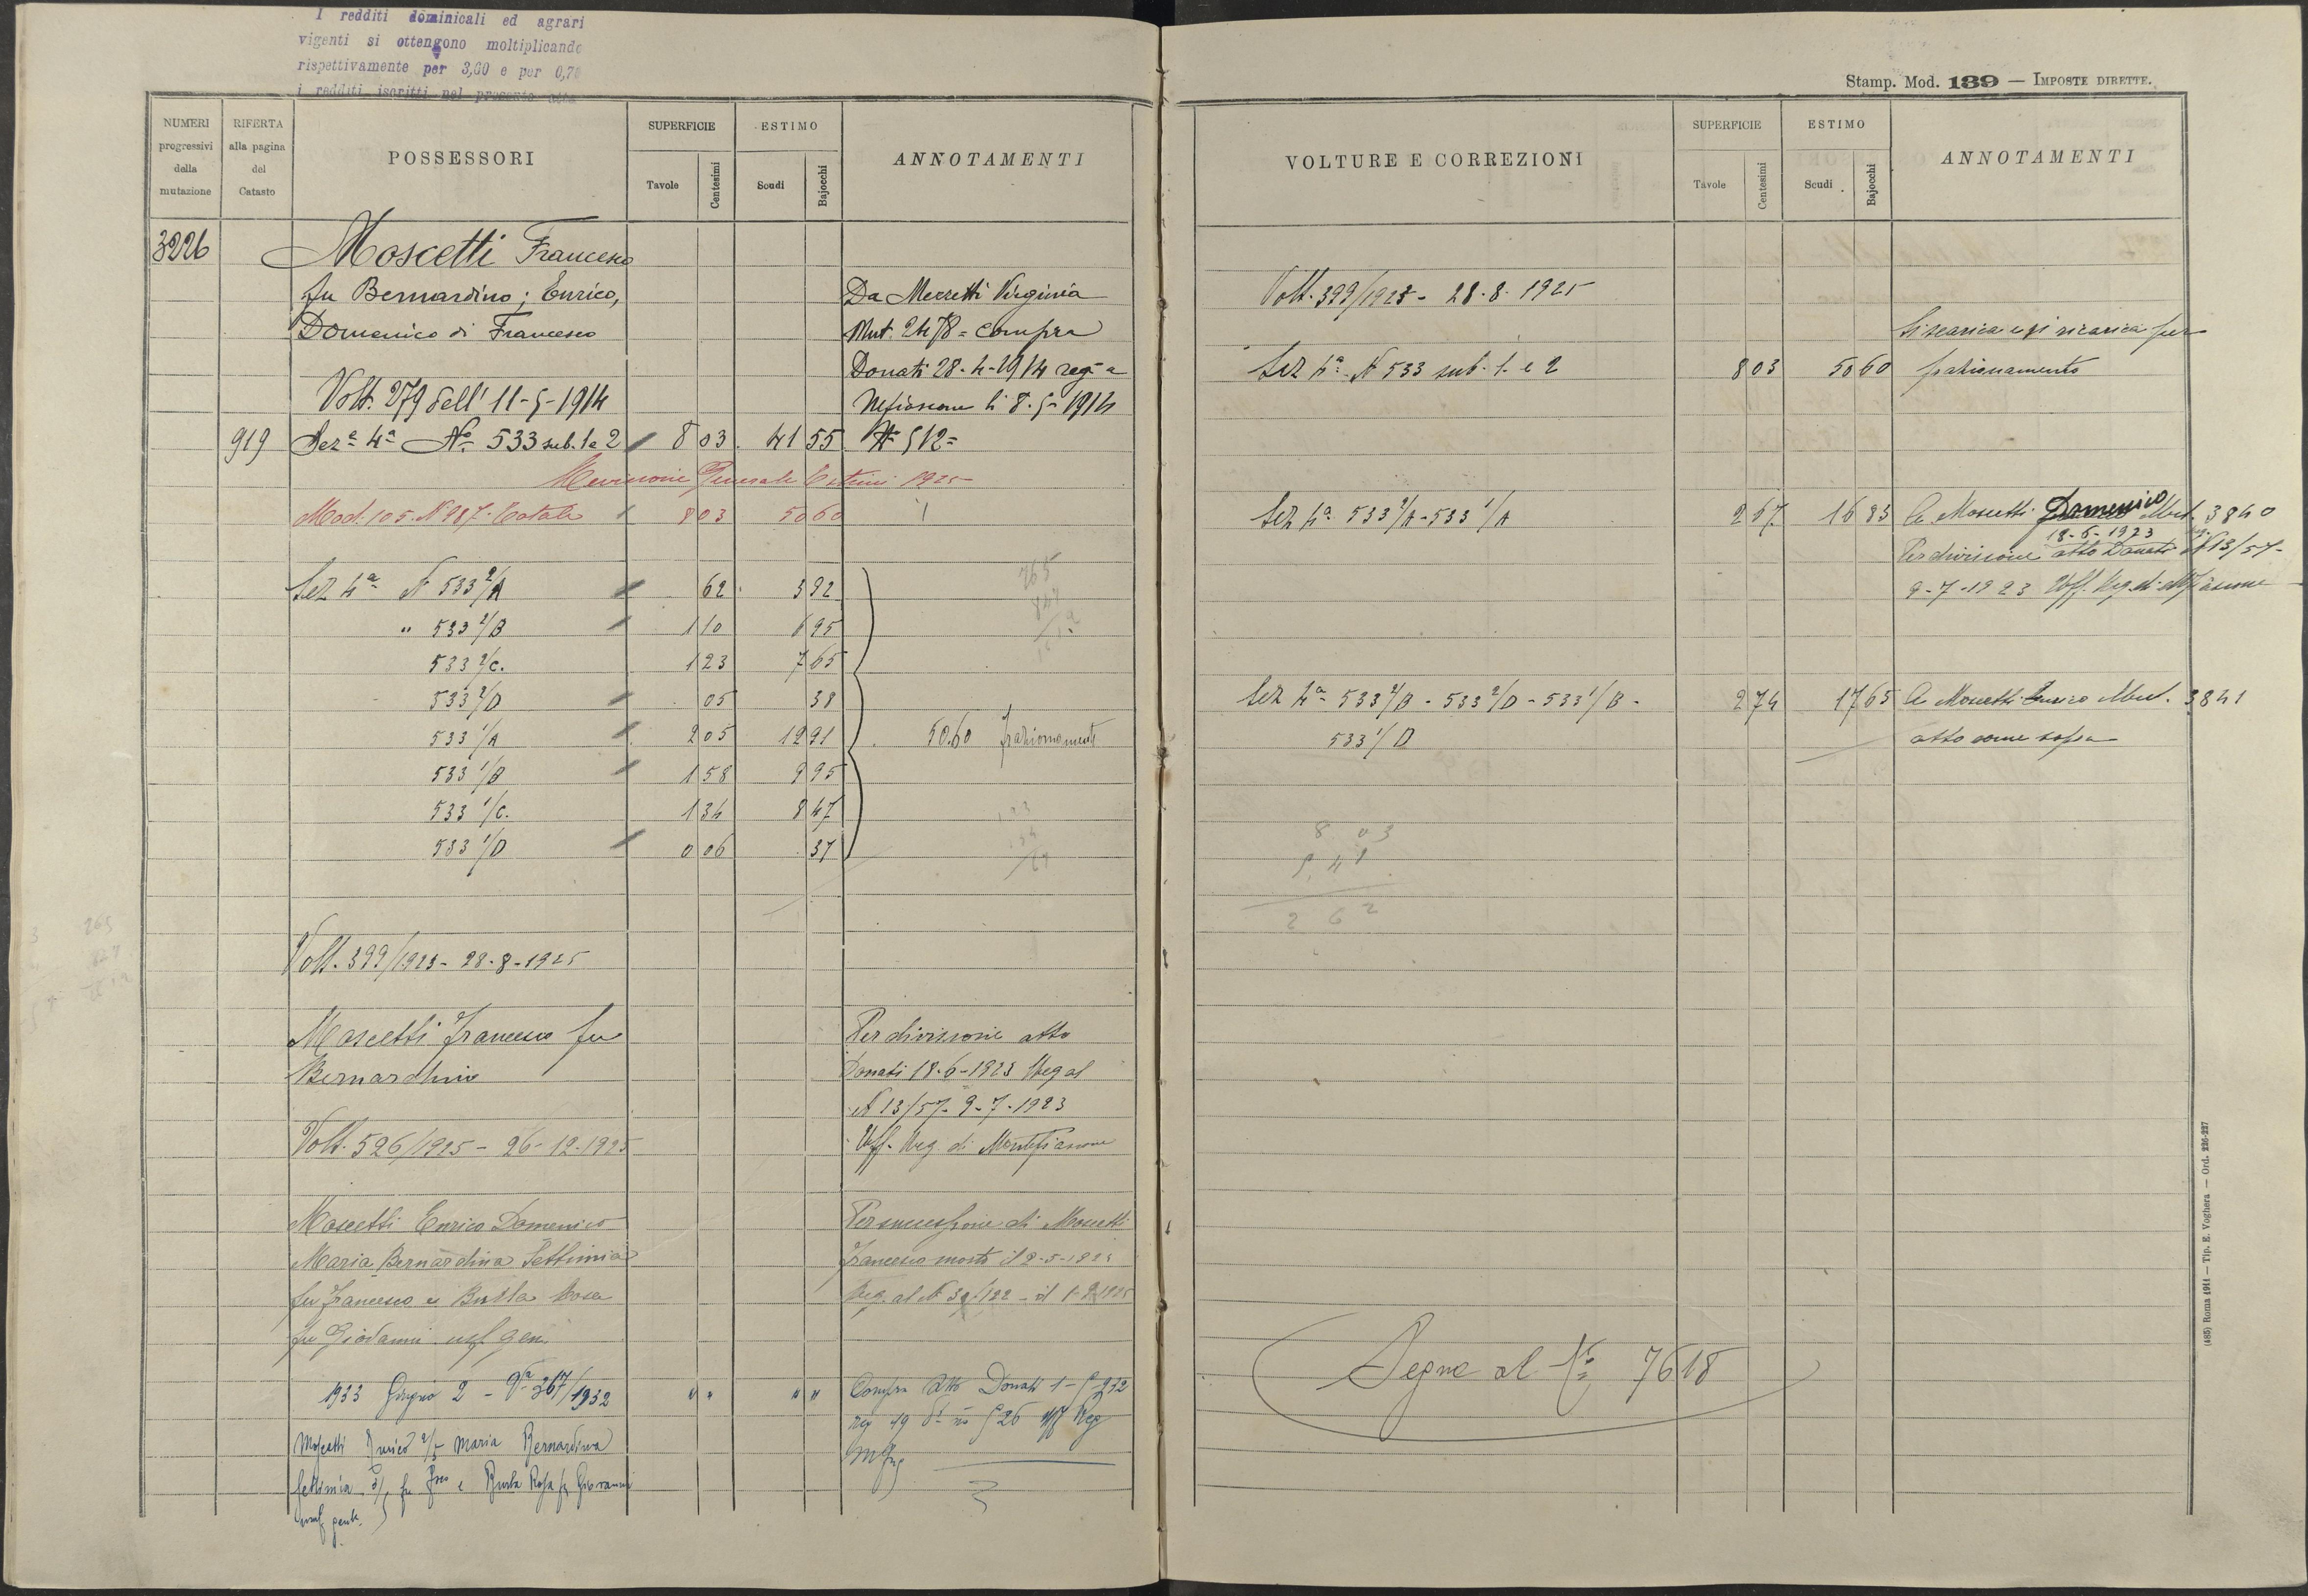 I redditi dominicali ed agrari
vigenti si ottengono moltiplicando
rispettivamente per 3,60 e per 0,70
i redditi iscritti nel presente atto
NUMERI progressivi della mutazione
RIFERTA alla pagina del Catasto
POSSESSORI
SUPERFICIE
Tavole
Centesimi
ESTIMO
Scudi
Bajocchi
ANNOTAMENTI
3226 Moscetti Francesco
fu Bernardino; Enrico, Da Mezzetti Virginia
Domenico di Francesco Mut. 2478 = compra
Donati 28-4-1914 reg-a
Volt. 279 dell' 11-5-1914 li 8-5-1914
919 Sez-e 4a No 533 sub. 1 e 2 8 03 41 55 N 512=
Revisione Generale Estimi 1925
Mod. 105. N 987. Totale 8 03 50 60
Sez 4a N 533 2/A 62 3 92
" 533 2/B 1 10 6 95
533 2/C. 1 23 7 65
533 2/D 05 38
533 1/A 2 05 12 91 50.60 frazionamento
533 1/B 1 58 9 95
533 1/C. 1 34 8 47
533 1/D 0 06 37
Volt. 399/1923 - 28-8-1925
Moscetti Francesco fu Per divisione atto
Bernardino Donati 18-6-1923 Reg al
N 13/57 - 9-7-1923
Volt. 526/1925 - 26-12-1925 Uff. Reg. di Montefiascone
Moscetti Enrico Domenico Per successione di Moscetti
Maria Bernardina Settimia Francesco morto il
fu Francesco e Burla Rosa Reg. al N
fu Giovanni usf. gen.
1933 Giugno 2 - Va 367/1932 " " " " Compra atto Donati
Moscetti Enrico 2/5 Maria Bernardina
Settimia 3/5 fu Fco e Burla Rosa fu Giovanni
usuf gente.
Stamp. Mod. 139 — IMPOSTE DIRETTE.
VOLTURE E CORREZIONI
SUPERFICIE
Tavole
Centesimi
ESTIMO
Scudi
Bajocchi
ANNOTAMENTI
Volt. 399/1923 - 28-8-1925
Si scarica e si ricarica per
Sez 4a N 533 sub. 1 e 2 8 03 50 60 frazionamento
Sez 4a 533 2/A - 533 1/A 2 67 16 83 A Moscetti Domenico Mut. 3840
18-6-1923
Per divisione atto Donati N 13/57-
9-7-1923 Uff. Reg. di Mfiascone
Sez 4a 533 2/B - 533 2/D - 533 1/B - 2 74 17 65 A Moscetti Enrico Mut. 3841
533 1/D atto come sopra
8 03
5,41
2 62
Segue al No 7618
(485) Roma 1911 — Tip. E. Voghera — Ord. 226-227